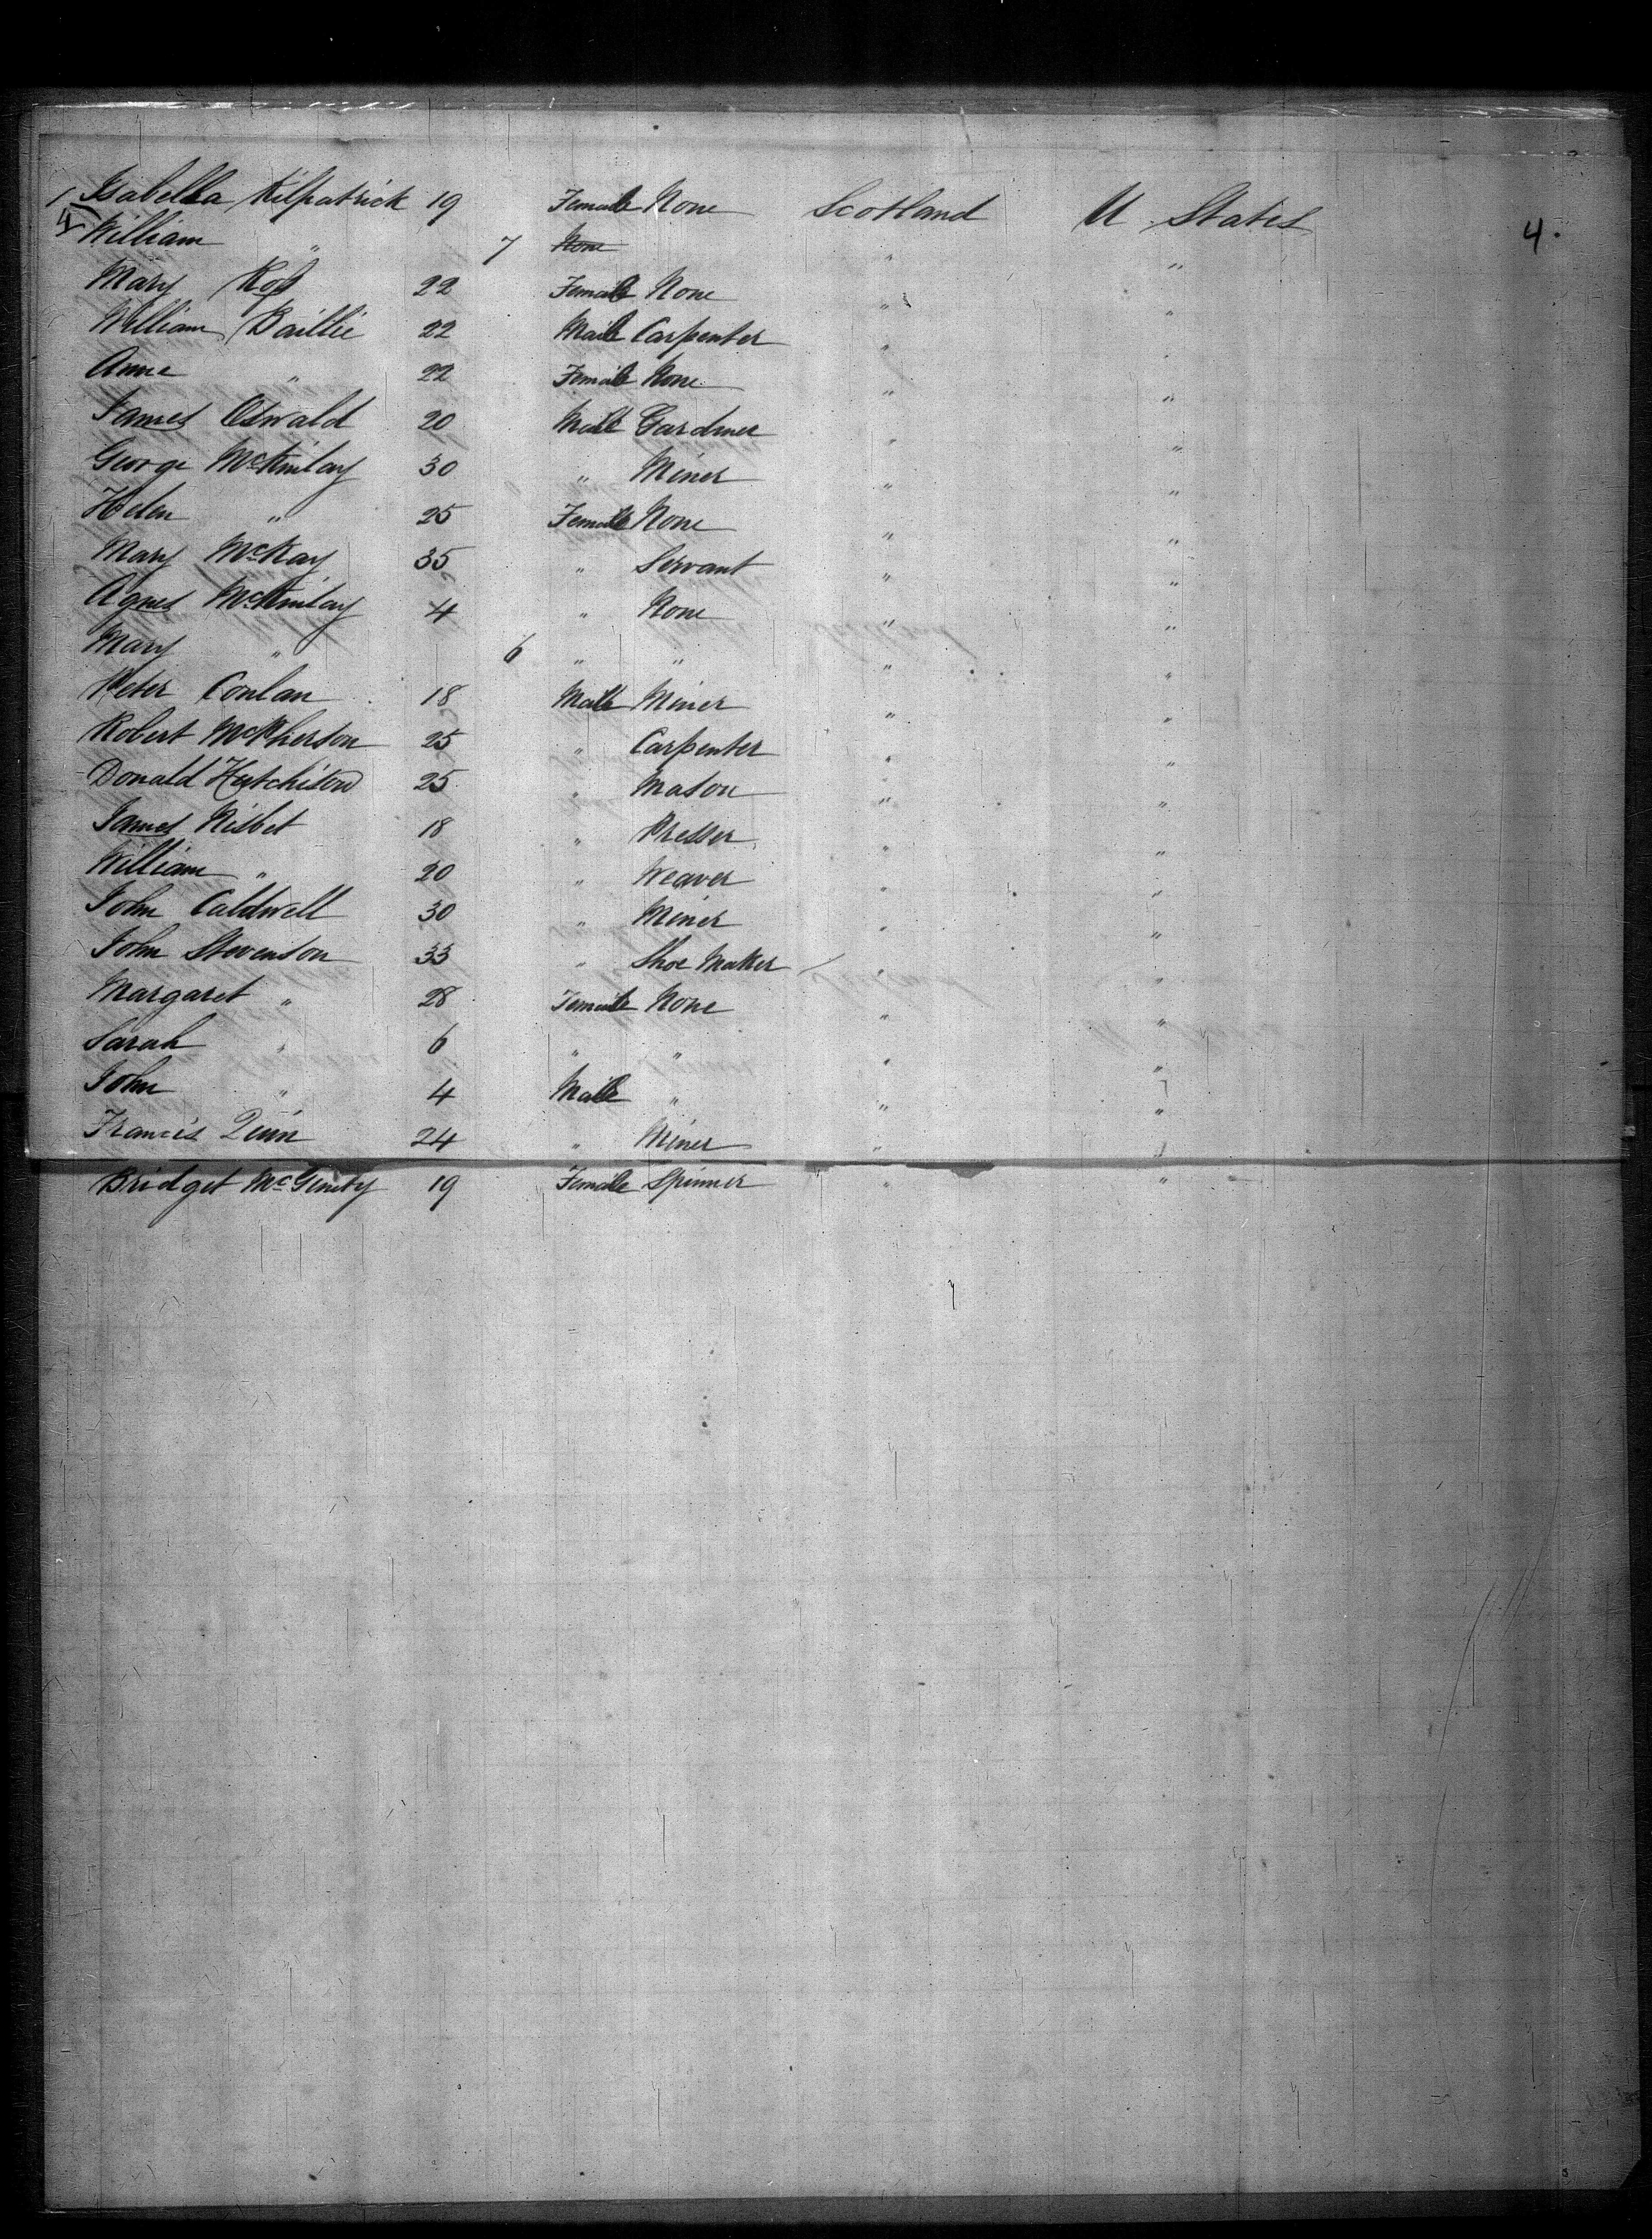 1 Isabella Kilpatrick 19 Female None Scotland U States 4.
4 William " 7 None " "
Mary Ross 22 Female None " "
William Baillie 22 Male Carpenter " "
Anne " 22 Female None " "
James Oswald 20 Male Gardner " "
George McKinlay 30 " Miner " "
Helen " 25 Female None " "
Mary McKay 35 " Servant " "
Agnes McKinlay 4 " None " "
Mary " 6 " " " "
Peter Conlan 18 Male Miner " "
Robert McPherson 25 " Carpenter " "
Donald Hutchison 25 " Mason " "
James Nisbet 18 " Presser " "
William " 20 " Weaver " "
John Caldwell 30 " Miner " "
John Stevenson 33 " Shoe Maker " "
Margaret " 28 Female None " "
Sarah " 6 " " " "
John " 4 Male " " "
Francis Quin 24 " Miner " "
Bridget McGinity 19 Female Spinner " "